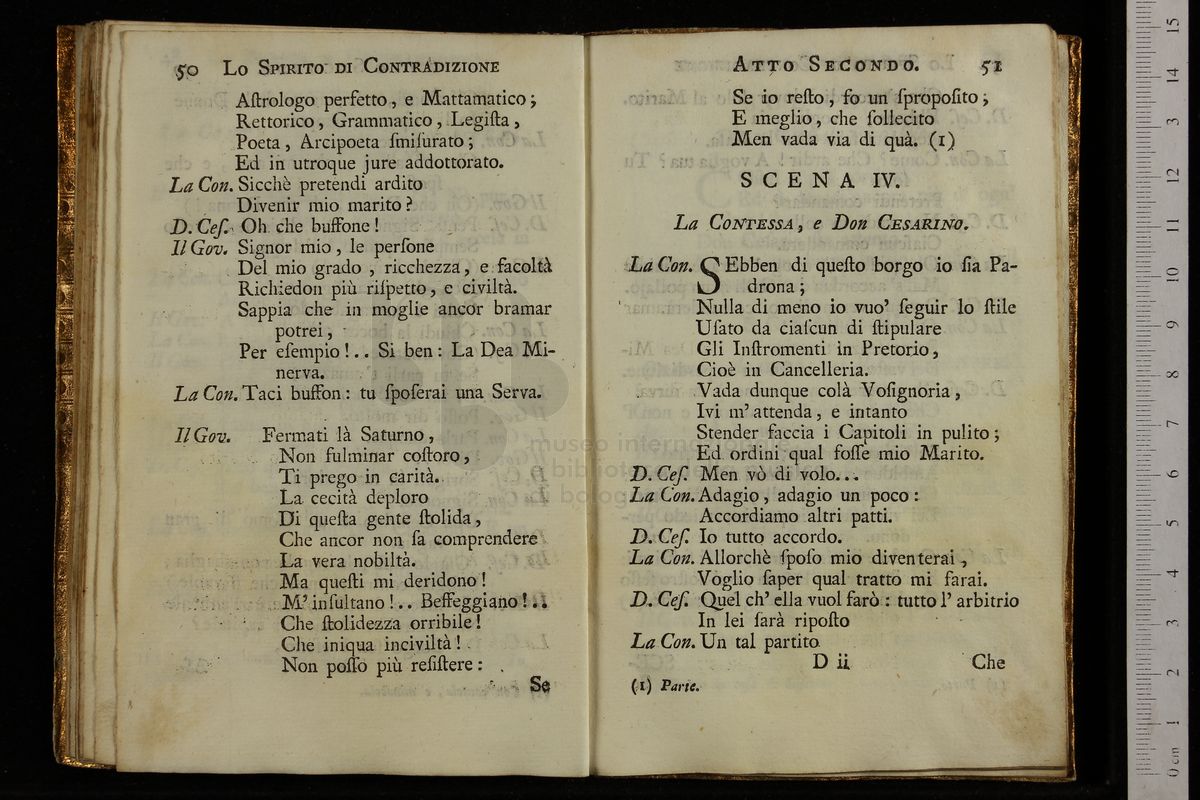 50 Lo Spirito di Contradizione
Aſtrologo perfetto, e Mattamatico;
Rettorico, Grammatico, Legiſta,
Poeta, Arcipoeta ſmiſurato;
Ed in utroque jure addottorato.
La Con. Sicchè pretendi ardito
Divenir mio marito?
D. Ceſ. Oh che buffone!
Il Gov. Signor mio, le perſone
Del mio grado, ricchezza, e facoltà
Richiedon più riſpetto, e civiltà.
Sappia che in moglie ancor bramar
potrei,
Per eſempio!.. Si ben: La Dea Mi-
nerva.
La Con. Taci buffon: tu ſpoſerai una Serva.
Il Gov. Fermati là Saturno,
Non fulminar coſtoro,
Ti prego in carità.
La cecità deploro
Di queſta gente ſtolida,
Che ancor non ſa comprendere
La vera nobiltà.
Ma queſti mi deridono!
M' inſultano!.. Beffeggiano!..
Che ſtolidezza orribile!
Che iniqua inciviltà!
Non poſſo più reſiſtere:
Se
Atto Secondo. 51
Se io reſto, fo un ſpropoſito;
E meglio, che ſollecito
Men vada via di quà. (1)
SCENA IV.
La Contessa, e Don Cesarino.
La Con. SEbben di queſto borgo io ſia Pa-
drona;
Nulla di meno io vuo' ſeguir lo ſtile
Uſato da ciaſcun di ſtipulare
Gli Inſtromenti in Pretorio,
Cioè in Cancelleria.
Vada dunque colà Voſignoria,
Ivi m' attenda, e intanto
Stender faccia i Capitoli in pulito;
Ed ordini qual foſſe mio Marito.
D. Ceſ. Men vò di volo...
La Con. Adagio, adagio un poco:
Accordiamo altri patti.
D. Ceſ. Io tutto accordo.
La Con. Allorchè ſpoſo mio diventerai,
Voglio ſaper qual tratto mi farai.
D. Ceſ. Quel ch' ella vuol farò: tutto l' arbitrio
In lei ſarà ripoſto
La Con. Un tal partito
D ii Che
(1) Parte.